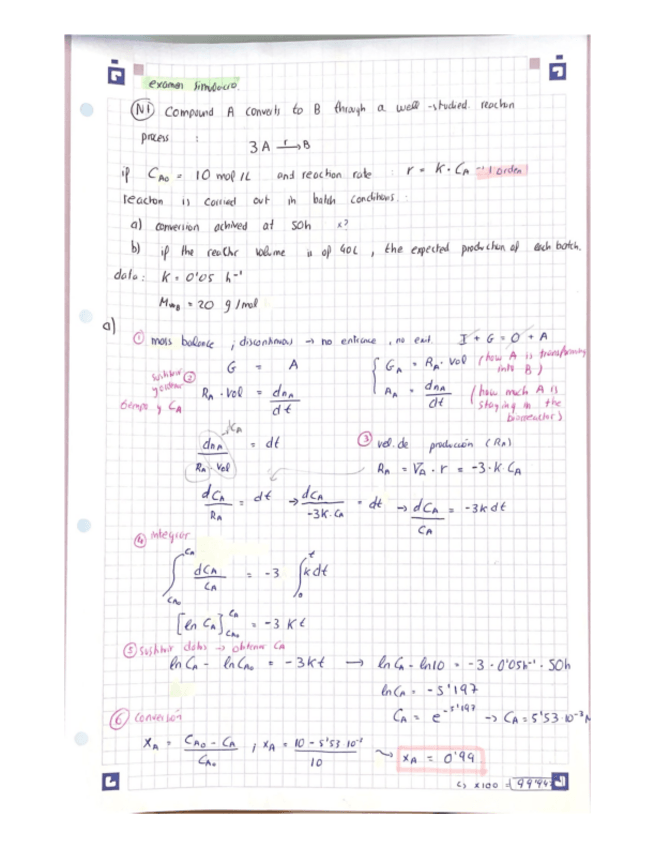 examen simulacro.
N1 Compound A converts to B through a well-studied reaction
process :
3A →r B
if CA0 = 10 mol/L and reaction rate : r = K·CA → 1 orden
reaction is carried out in batch conditions:
a) conversion achived at 50h x?
b) if the reactor volume is of 40L, the expected production of each batch.
data: K = 0'05 h⁻¹
MwB = 20 g/mol
a)
① mass balance ; discontinous → no entrance, no exit. I + G = O + A
② sustituir y obtener tiempo y CA
G = A
{ GA = RA · Vol (how A is transforming into B)
RA · Vol = dnA/dt
AA = dnA/dt (how much A is staying in the bioreactor)
dCA
dnA/(RA · Vol) = dt
③ vel. de producción (RA)
RA = VA · r = -3·K·CA
dCA/RA = dt → dCA/(-3K·CA) = dt → dCA/CA = -3K dt
④ integrar
∫CA0^CA dCA/CA = -3 ∫0^t K dt
[ln CA]CA0^CA = -3 K t
⑤ sustituir datos → obtener CA
ln CA - ln CA0 = -3Kt → ln CA - ln10 = -3 · 0'05h⁻¹ · 50h
ln CA = -5'197
CA = e^-5'197 → CA = 5'53·10⁻³ M
⑥ Conversión
XA = (CA0 - CA)/CA0 ; XA = (10 - 5'53·10⁻³)/10 → XA = 0'99
↳ x100 =